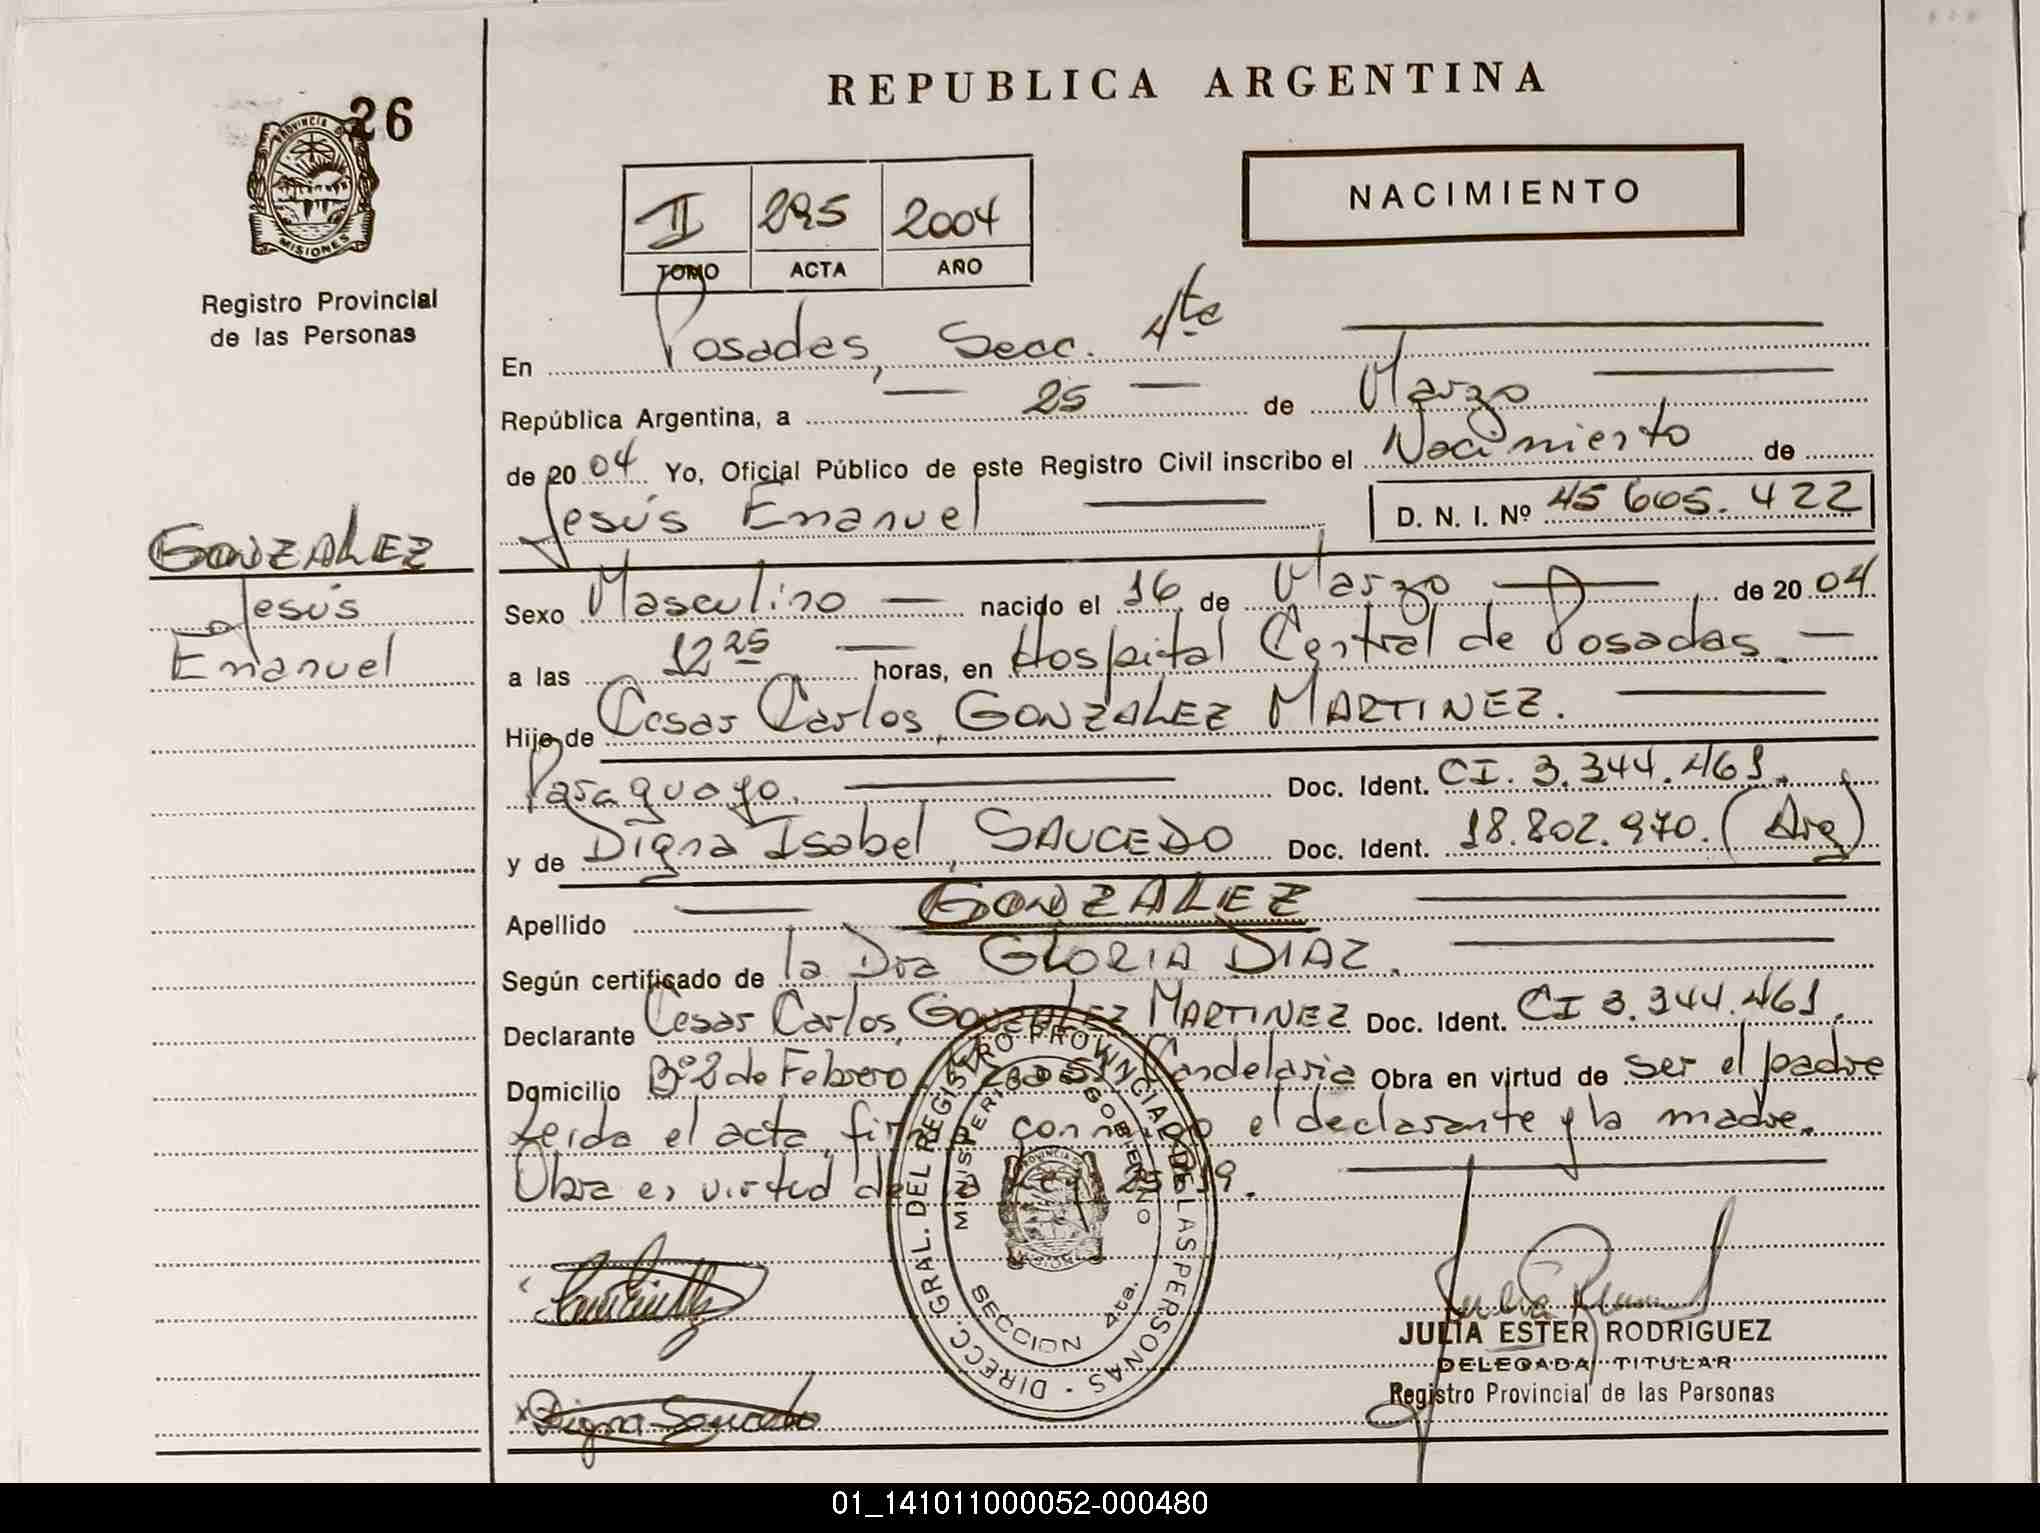 REPUBLICA ARGENTINA
26
PROVINCIA DE
MISIONES
Registro Provincial
de las Personas
II 295 2004
TOMO ACTA AÑO
NACIMIENTO
En Posadas, Secc. 4ta
República Argentina, a 25 de Marzo
de 2004 Yo, Oficial Público de este Registro Civil inscribo el Nacimiento de
Jesús Emanuel D. N. I. Nº 45 605.422
GONZALEZ
Jesús
Emanuel
Sexo Masculino nacido el 16 de Marzo de 2004
a las 12 25 horas, en Hospital Central de Posadas.
Hijo de Cesar Carlos, GONZALEZ MARTINEZ.
Paraguayo. Doc. Ident. CI. 3.344.461.
y de Digna Isabel, SAUCEDO Doc. Ident. 18.802.970. (Arg)
Apellido GONZALEZ
Según certificado de la Dra GLORIA DIAZ.
Declarante Cesar Carlos, GONZALEZ MARTINEZ Doc. Ident. CI 3.344.461.
Domicilio Bº 2 de Febrero, Candelaria Obra en virtud de ser el padre
Leída el acta, firma conmigo el declarante y la madre.
Obra en virtud de la Ley
DIRECC. GRAL. DEL REGISTRO PROVINCIAL DE LAS PERSONAS
MINISTERIO DE GOBIERNO
SECCION 4ta.
Digna Saucedo
JULIA ESTER RODRIGUEZ
DELEGADA TITULAR
Registro Provincial de las Personas
01_141011000052-000480